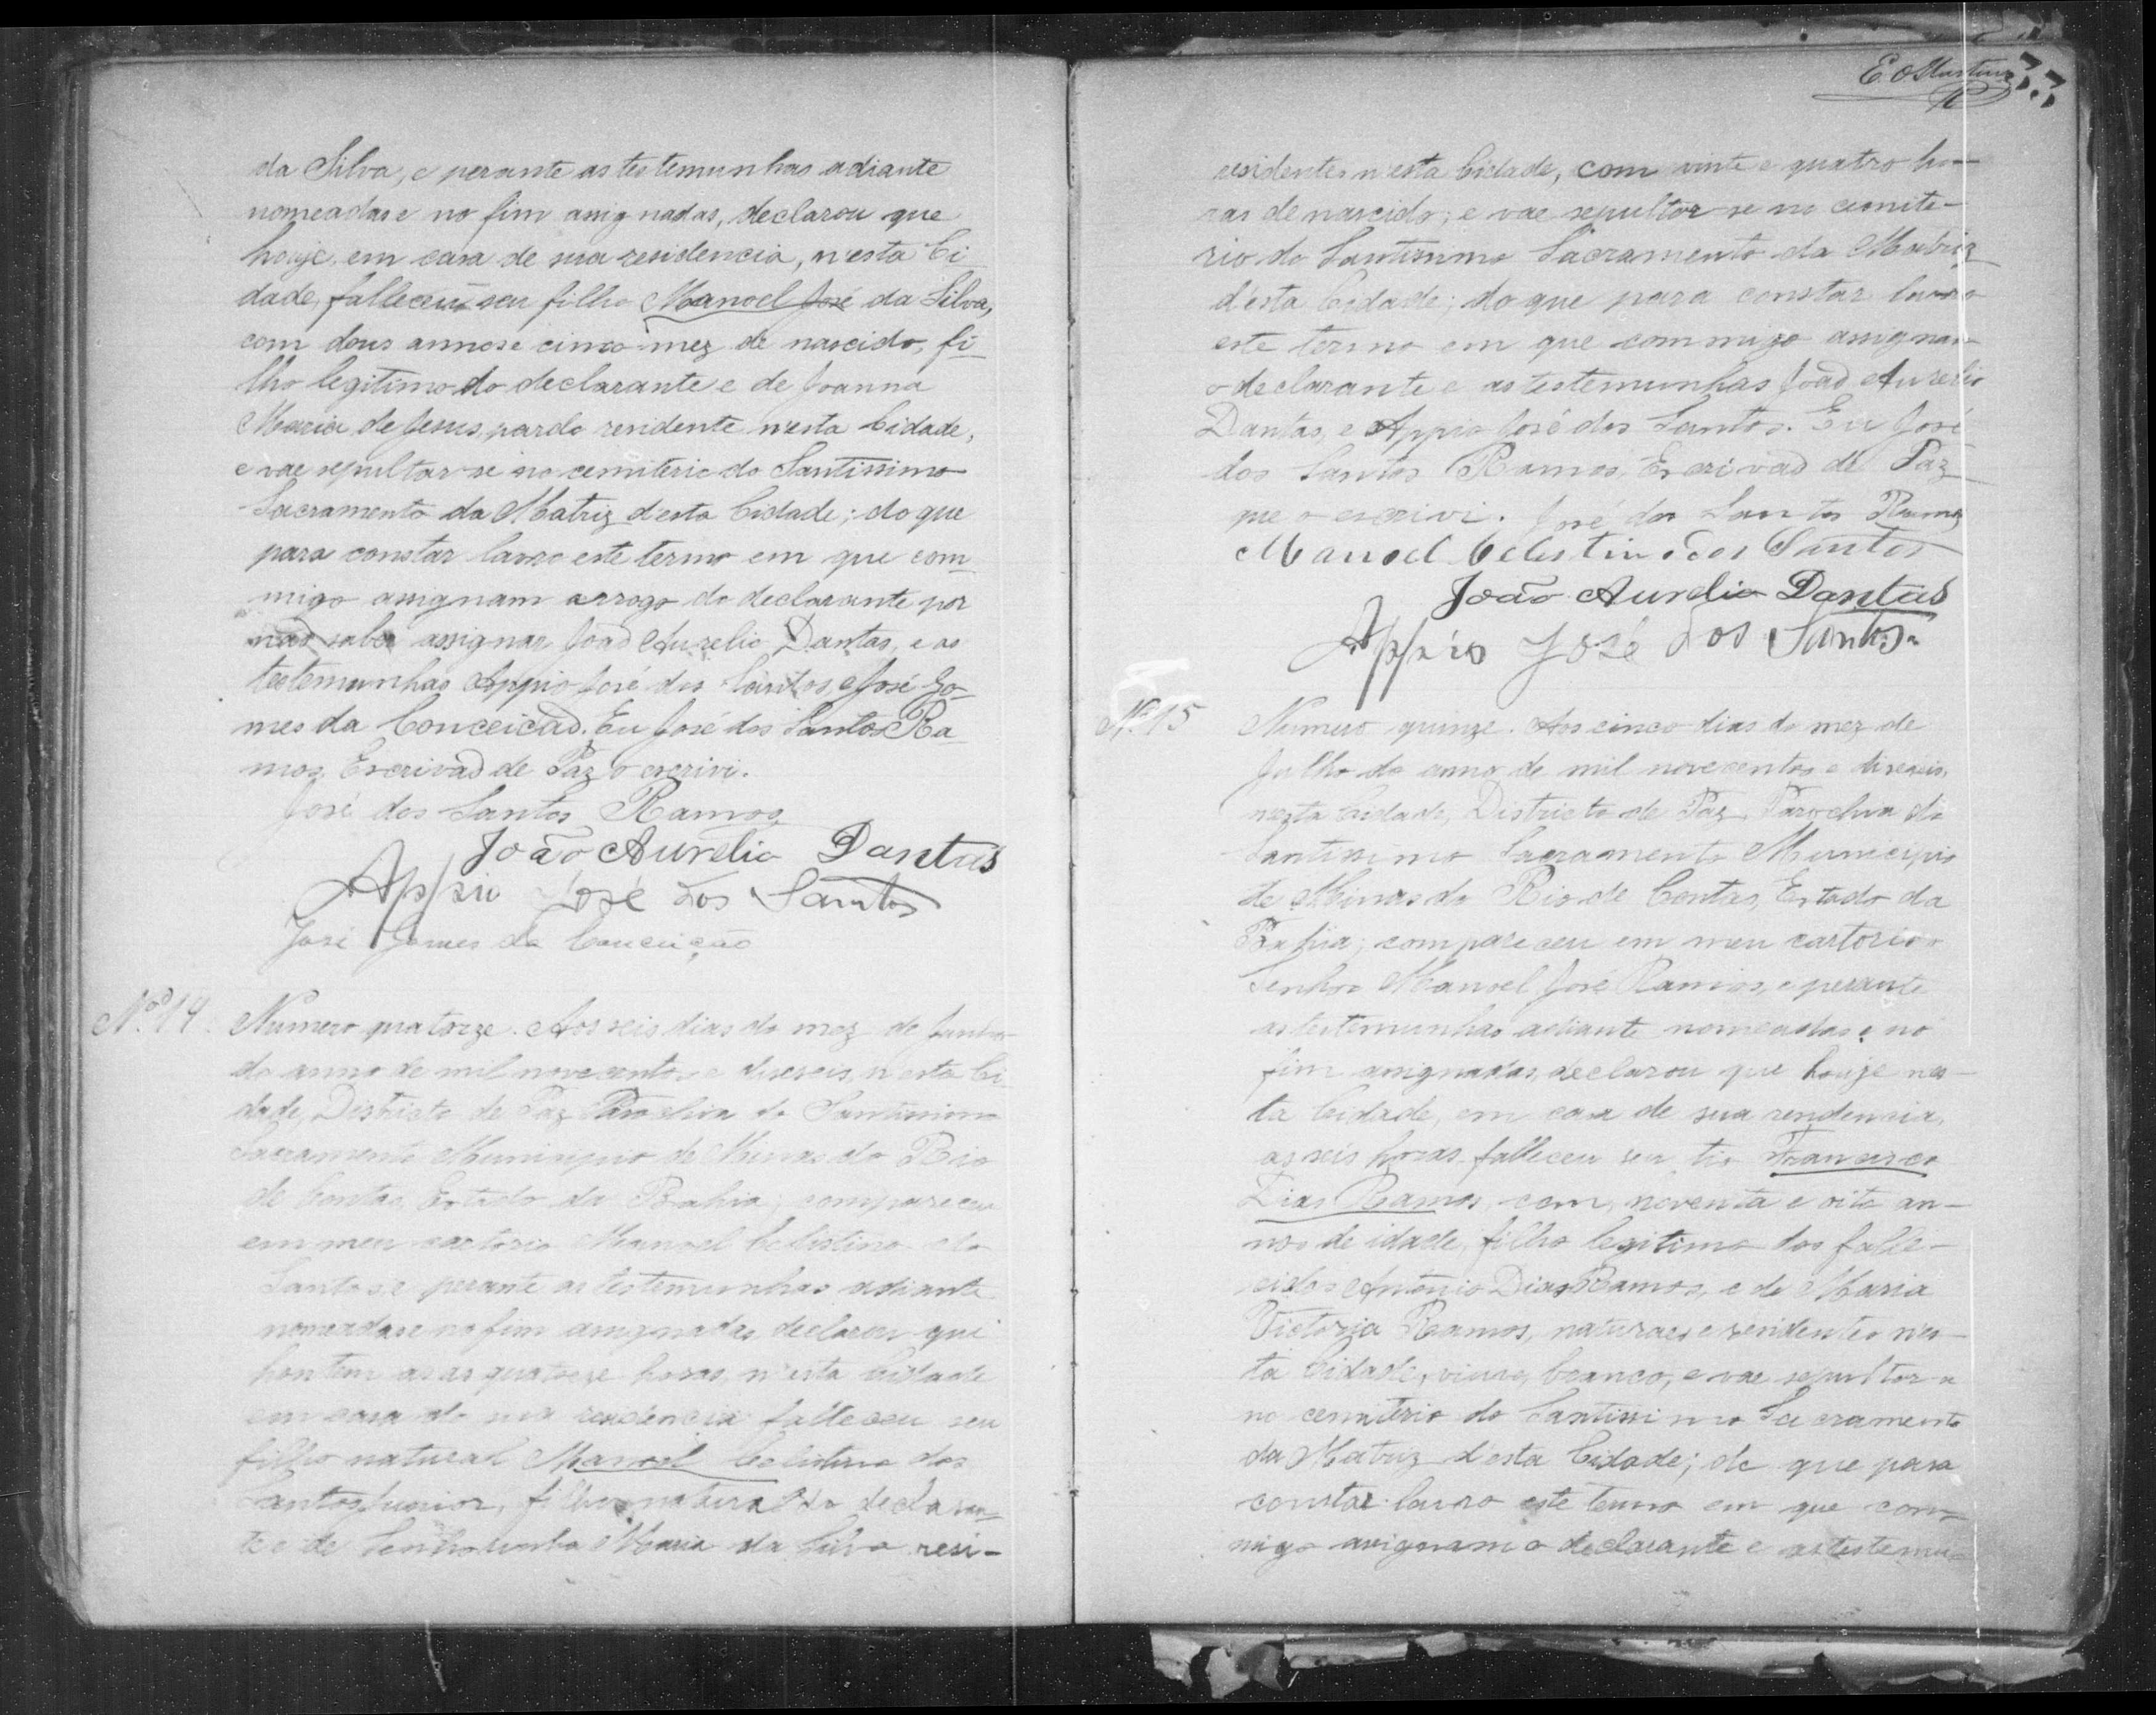 da Silva, e perante as testemunhas adiante
nomeadas e no fim assignadas, declarou que
houje, em casa de sua residencia, n'esta Ci
dade, falleceu seu filho Manoel José da Silva,
com dous annos e cinco mez de nascido, fi
lho legitimo do declarante e de Joanna
Maria de Jesus, pardo residente n'esta Cidade,
e vae sepultar-se no cemiterio do Santissimo
Sacramento da Matriz d'esta Cidade; do que
para constar lavro este termo em que com
migo assignam arrogo do declarante por
não saber assignar João Aurelio Dantas, e as
testemunhas Appio José dos Santos, e José Go
mes da Conceicão. Eu José dos Santos Ra
mos, Escrivão de Paz o escrivi.
José dos Santos Ramos
João Aurelio Dantas
Appio José dos Santos
José Gomes da Conceição
Nº 14. Numero quatorze. Aos seis dias do mez de
do anno de mil novecentos e diseseis, n'esta Ci
dade, Districto de Paz Parochia do Santissimo
Sacramento Municipio de Minas do Rio
de Contas, Estado da Bahia, compareceu
em meu cartorio Manoel Celistino dos
Santos, e perante as testemunhas adiante
nomeadas e no fim assignadas, declarou que
hontem as quatorze horas, n'esta Cidade
em casa de sua residencia falleceu seu
filho natural Manoel Celistino dos
Santos Junior, filho natural do declaran
te e de Senhorinha Maria da Silva resi-
E. O Martins
33
residentes n'esta Cidade, com vinte e quatro ho-
ras de nascido; e vae sepultar-se no cemite-
rio do Santissimo Sacramento da Matriz
d'esta Cidade; do que para constar lavro
este termo em que commigo assignam
o declarante e as testemunhas João Aurelio
Dantas, e Appio José dos Santos. Eu José
dos Santos Ramos, Escrivão de Paz
que o escrivi. José dos Santos Ramos
Manoel Celestino dos Santos
João Aurelio Dantas
Appio José dos Santos
Nº 15 Numero quinze. Aos cinco dias do mez de
Julho do anno de mil novecentos e diseseis,
nesta Cidade, Districto de Paz, Parochia do
Santissimo Sacramento Municipio
de Minas do Rio de Contas, Estado da
Bahia; compareceu em meu cartorio o
Senhor Manoel José Ramos, e perante
as testemunhas adiante nomeadas e no
fim assignadas, declarou que houje nes-
ta Cidade, em casa de sua residencia,
as seis horas falleceu seu tio Francisco
Dias Ramos, com noventa e oito an-
nos de idade, filho legitimo dos falle-
cidos Antonio Dias Ramos, e de Maria
Victoria Ramos, naturaes e residentes n'es-
ta Cidade, viuvo, branco, e vae sepultar-se
no cemiterio do Santissimo Sacramento
da Matriz d'esta Cidade; do que para
constar lavro este termo em que com-
migo assignam o declarante e as testemu-